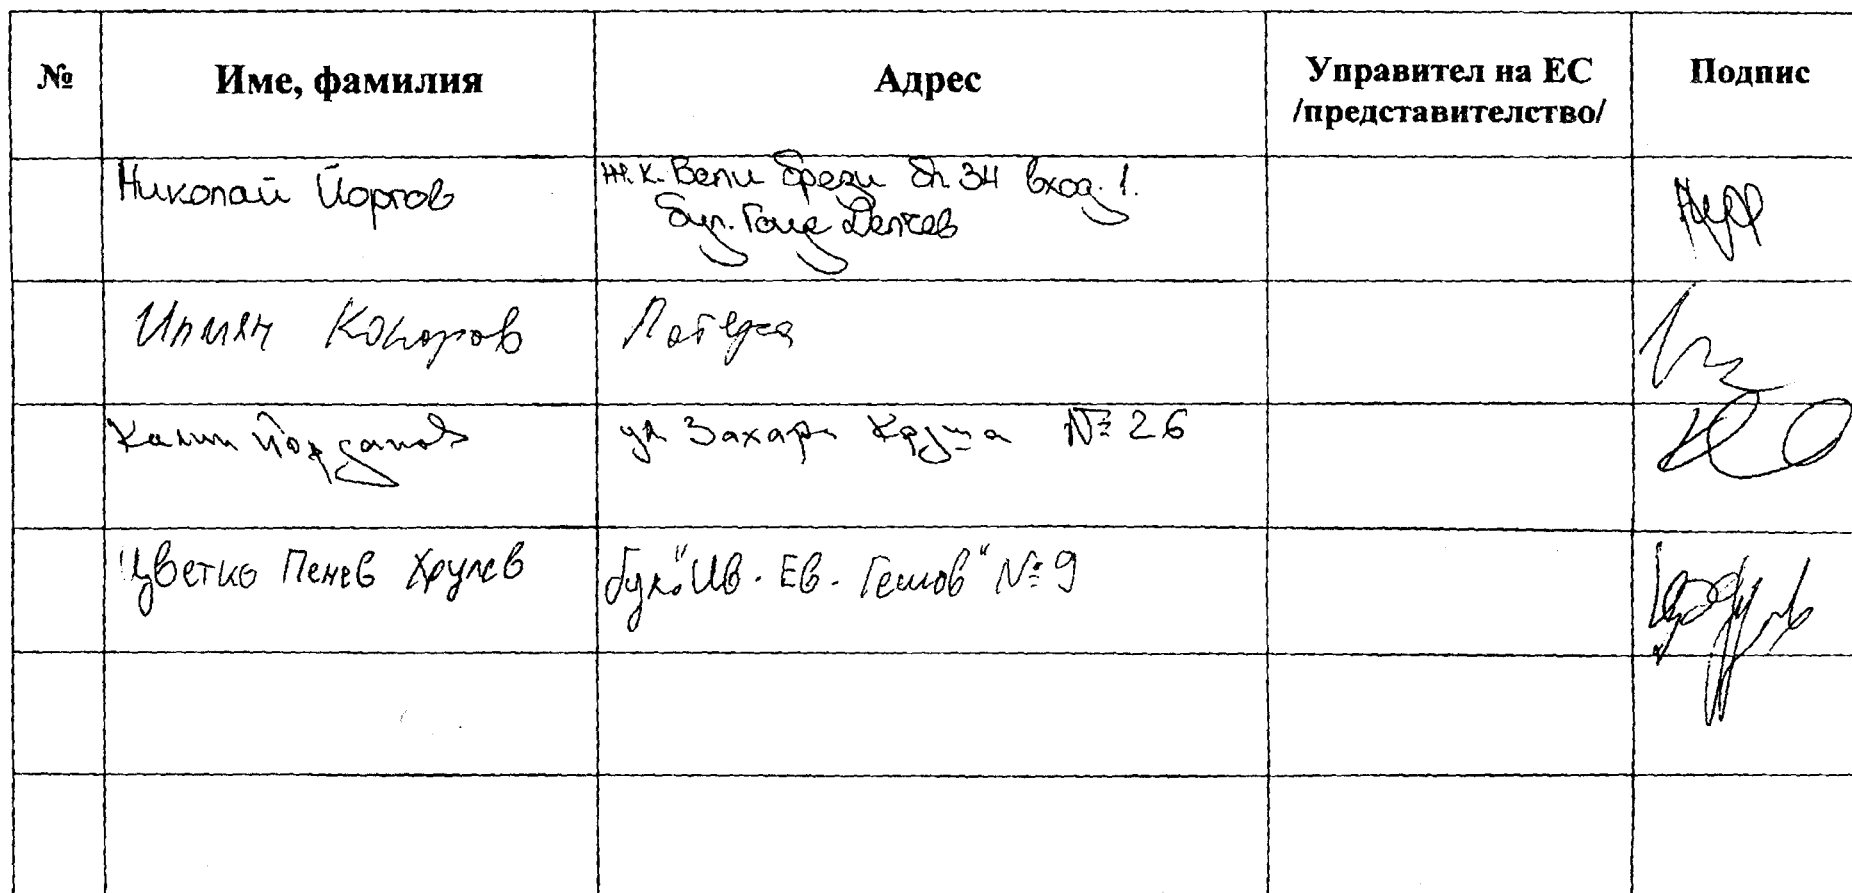 № Име, фамилия Адрес Управител на ЕС /представителство/ Подпис
Николай Йортов ж.к. Бели брези бл. 34 вход. 1.
бул. Гоце Делчев
Илиян
Калин Йорданов ул Захари Круша № 26
Цветко Пенев Хрулев бул. "Ив. Ев. Гешов" № 9